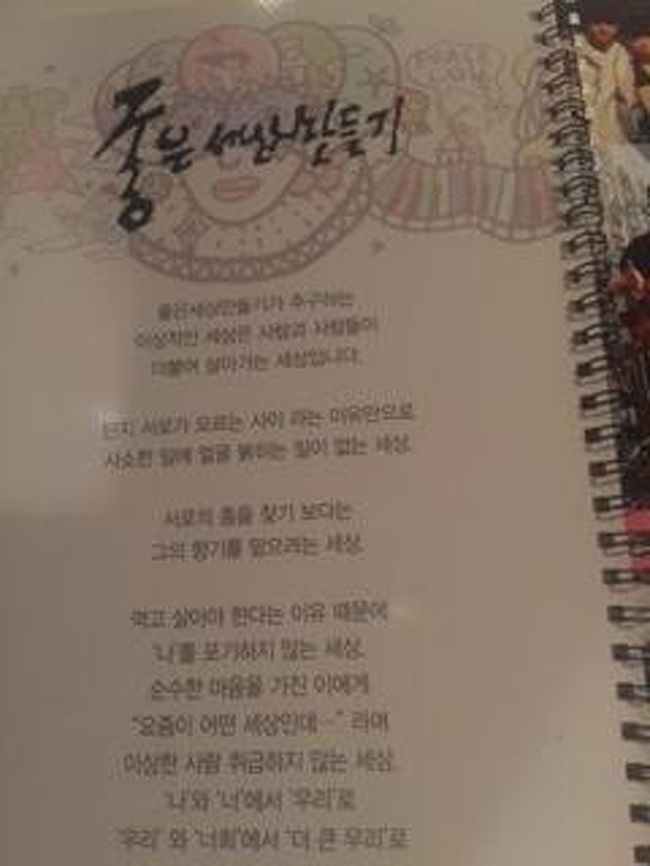 좋은세상만들기
좋은세상만들기가 추구하는
이상적인 세상은 사람과 사람들이
더불어 살아가는 세상입니다.
단지 서로가 모르는 사이 라는 이유만으로
사소한 일에 얼굴 붉히는 일이 없는 세상.
서로의 흠을 찾기 보다는
그의 향기를 맡으려는 세상.
먹고 살아야 한다는 이유 때문에
'나'를 포기하지 않는 세상.
순수한 마음을 가진 이에게
"요즘이 어떤 세상인데…" 라며
이상한 사람 취급하지 않는 세상.
'나'와 '너'에서 '우리'로
'우리' 와 '너희'에서 '더 큰 우리'로